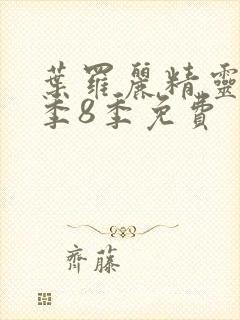 葉羅麗精靈
季8季免費
齊藤